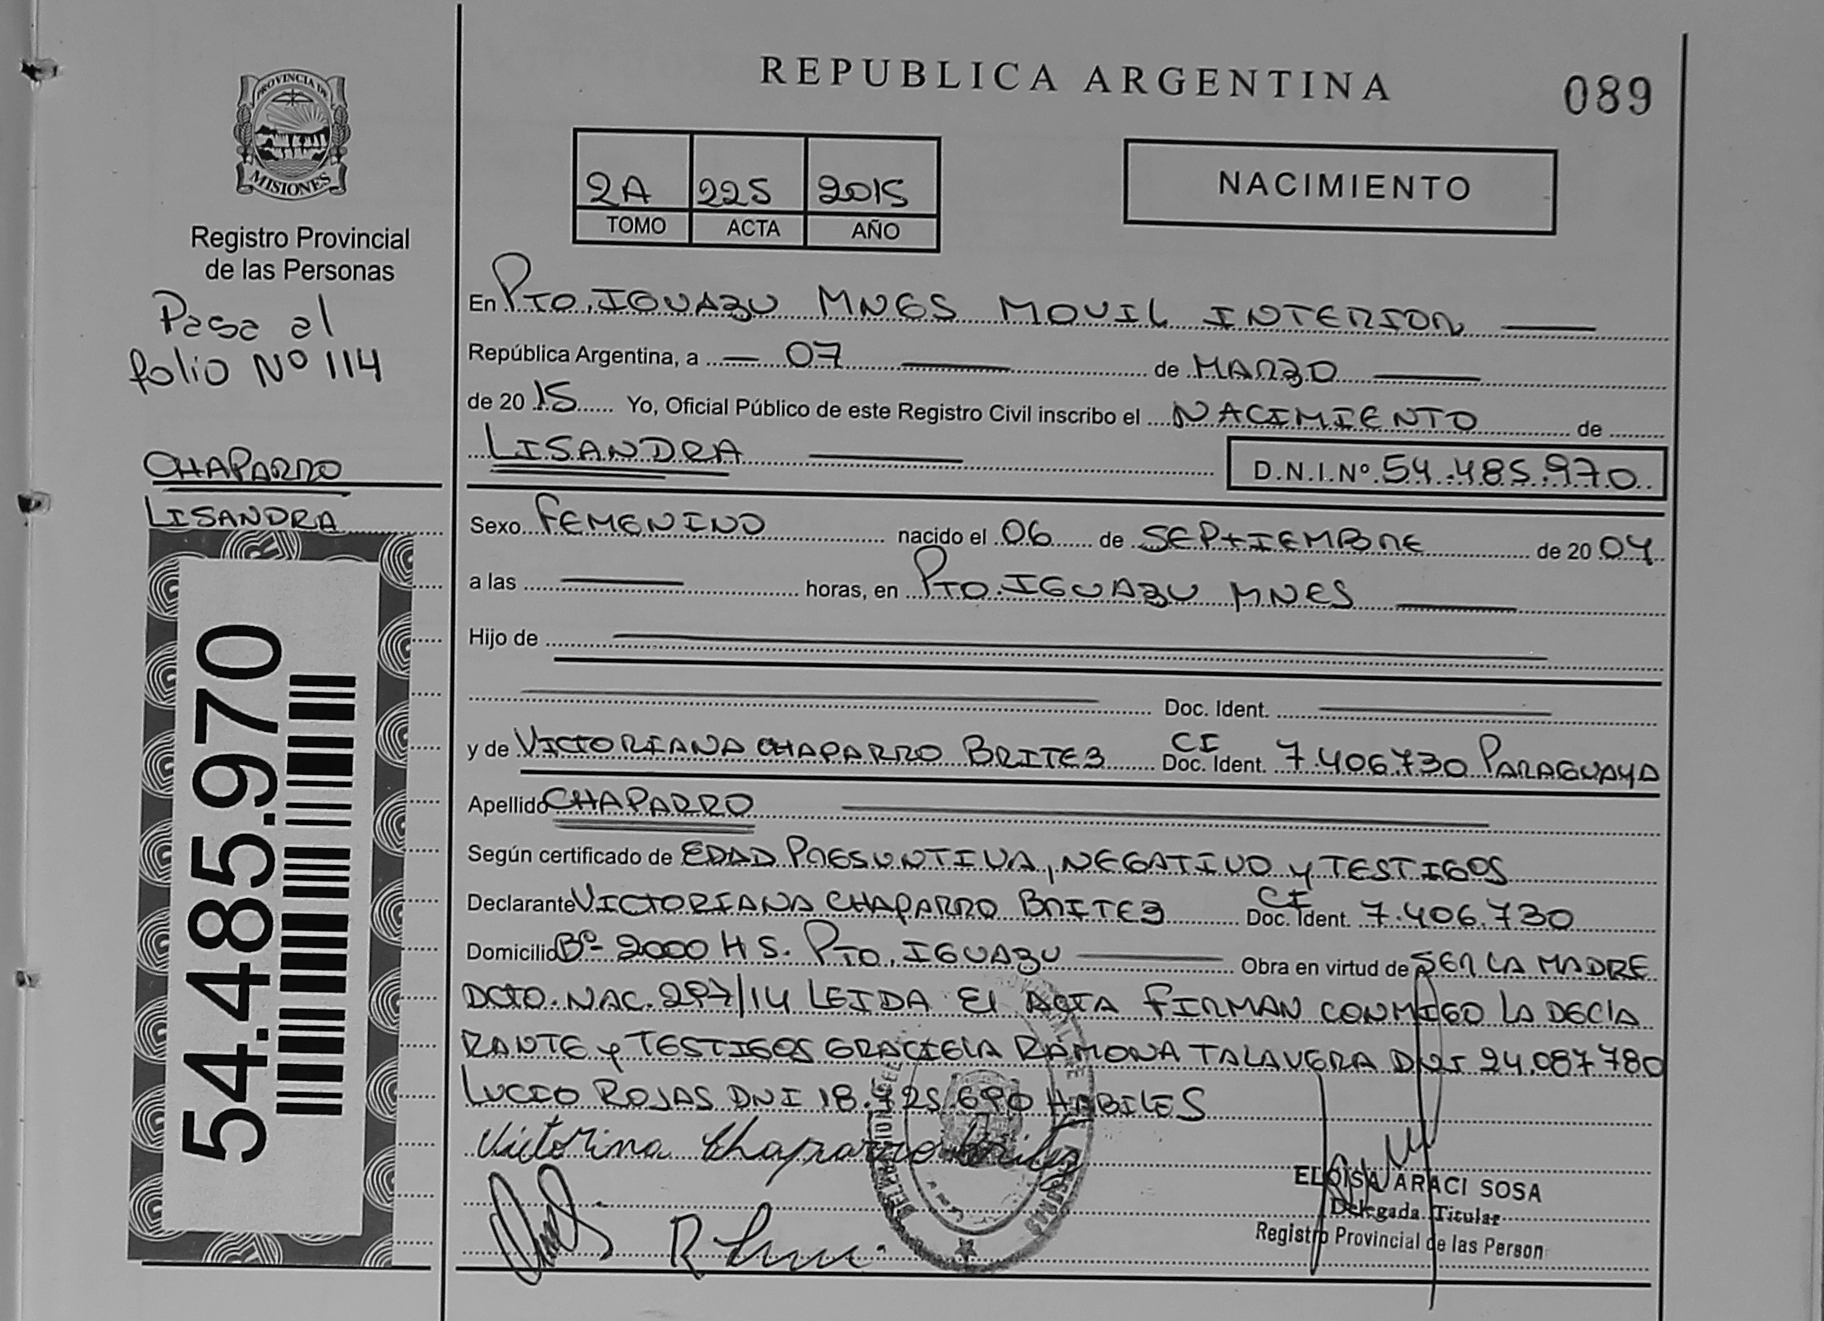 REPUBLICA ARGENTINA
089
PROVINCIA DE
MISIONES
Registro Provincial
de las Personas
Pasa al
folio Nº 114
CHAPARRO
LISANDRA
54.485.970
2A 225 2015
TOMO ACTA AÑO
NACIMIENTO
En PTO. IGUAZU MNES MOVIL INTERIOR
República Argentina, a 07 de MARZO
de 2015 Yo, Oficial Público de este Registro Civil inscribo el NACIMIENTO de
LISANDRA D.N.I.Nº 54.485.970
Sexo FEMENINO nacido el 06 de SEPTIEMBRE de 2004
a las horas, en PTO. IGUAZU MNES
Hijo de
Doc. Ident.
y de VICTORIANA CHAPARRO BRITEZ CI Doc. Ident. 7.406.730 PARAGUAYA
Apellido CHAPARRO
Según certificado de EDAD PRESUNTIVA, NEGATIVO y TESTIGOS
Declarante VICTORIANA CHAPARRO BRITEZ CI Doc. Ident. 7.406.730
Domicilio Bº 2000 HS. PTO. IGUAZU Obra en virtud de SER LA MADRE
DCTO. NAC. 297/14 LEIDA EL ACTA FIRMAN CONMIGO LA DECLA
RANTE y TESTIGOS GRACIELA RAMONA TALAVERA DNI 24.087.780
LUCIO ROJAS DNI 18. HABILES
Victorina Chaparro Britez
ELOISA ARACI SOSA
Delegada Titular
Registro Provincial de las Person